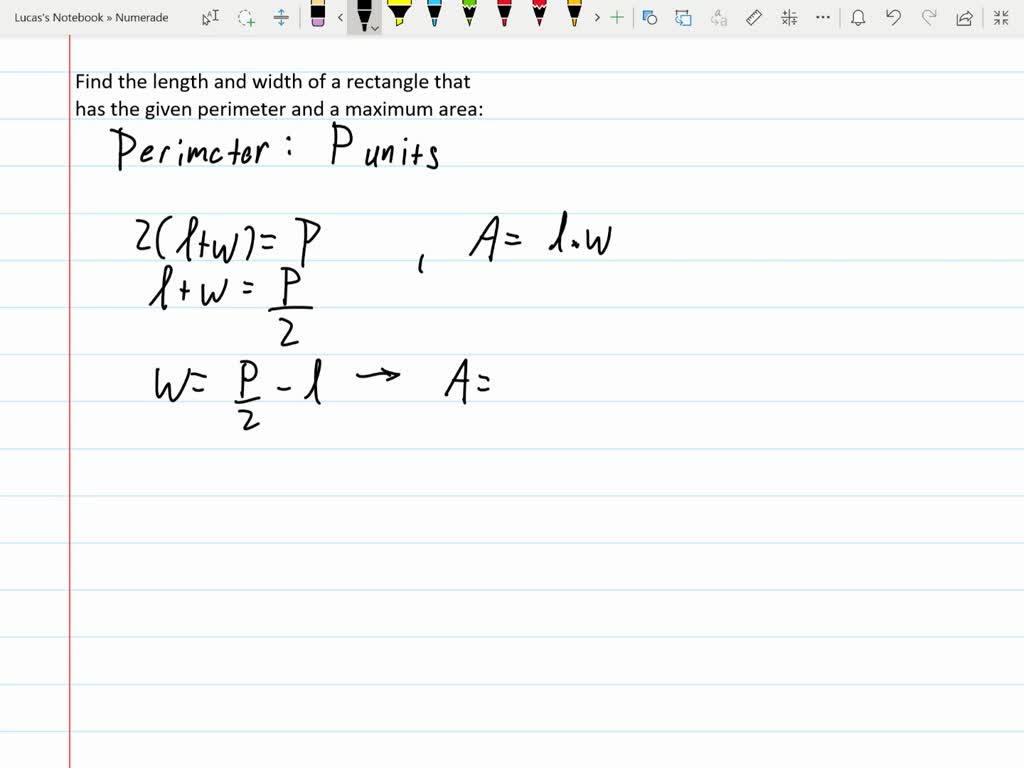 Lucas's Notebook » Numerade
Find the length and width of a rectangle that
has the given perimeter and a maximum area:
Perimeter : P units
2(l+w)= P , A= l·w
l+w = P/2
w= P/2 - l → A=